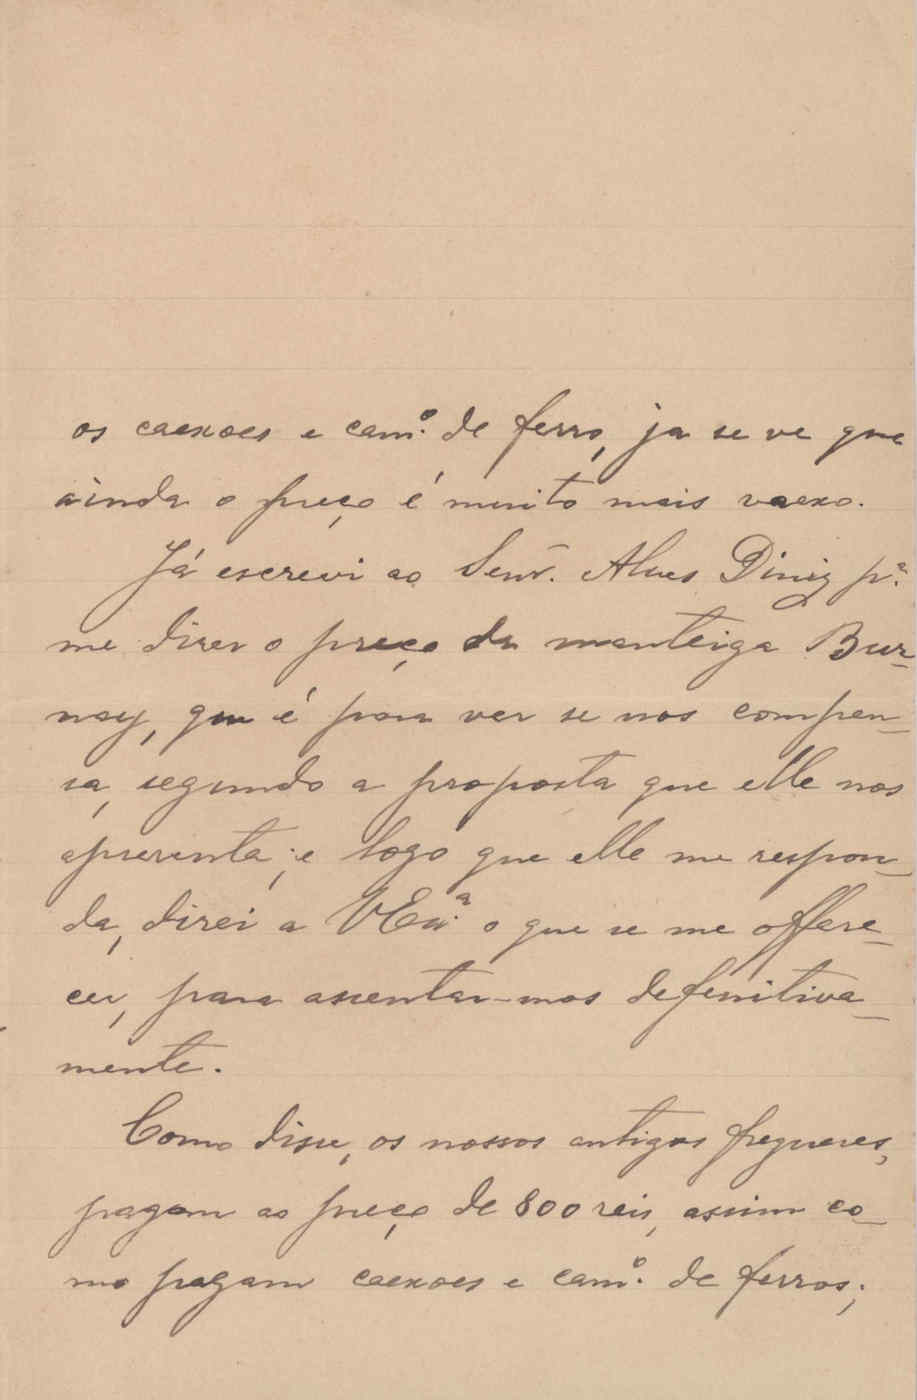 os caexoes e cam.º de ferro, ja se ve que
ainda o preço é muito mais vaexo.
Já escrevi ao Senr. Alves Diniz pª.
me dizer o preço da manteiga Bur-
nay, que é para ver se nos compen-
sa, segundo a proposta que elle nos
apresenta; e logo que elle me respon-
da, direi a VExª. o que se me offere-
cer, para assentar-mos defenitiva-
mente.
Como disse, os nossos antigos freguezes,
pagam ao preço de 800 reis, assim co-
mo pagam caexoes e cam.º de ferros;